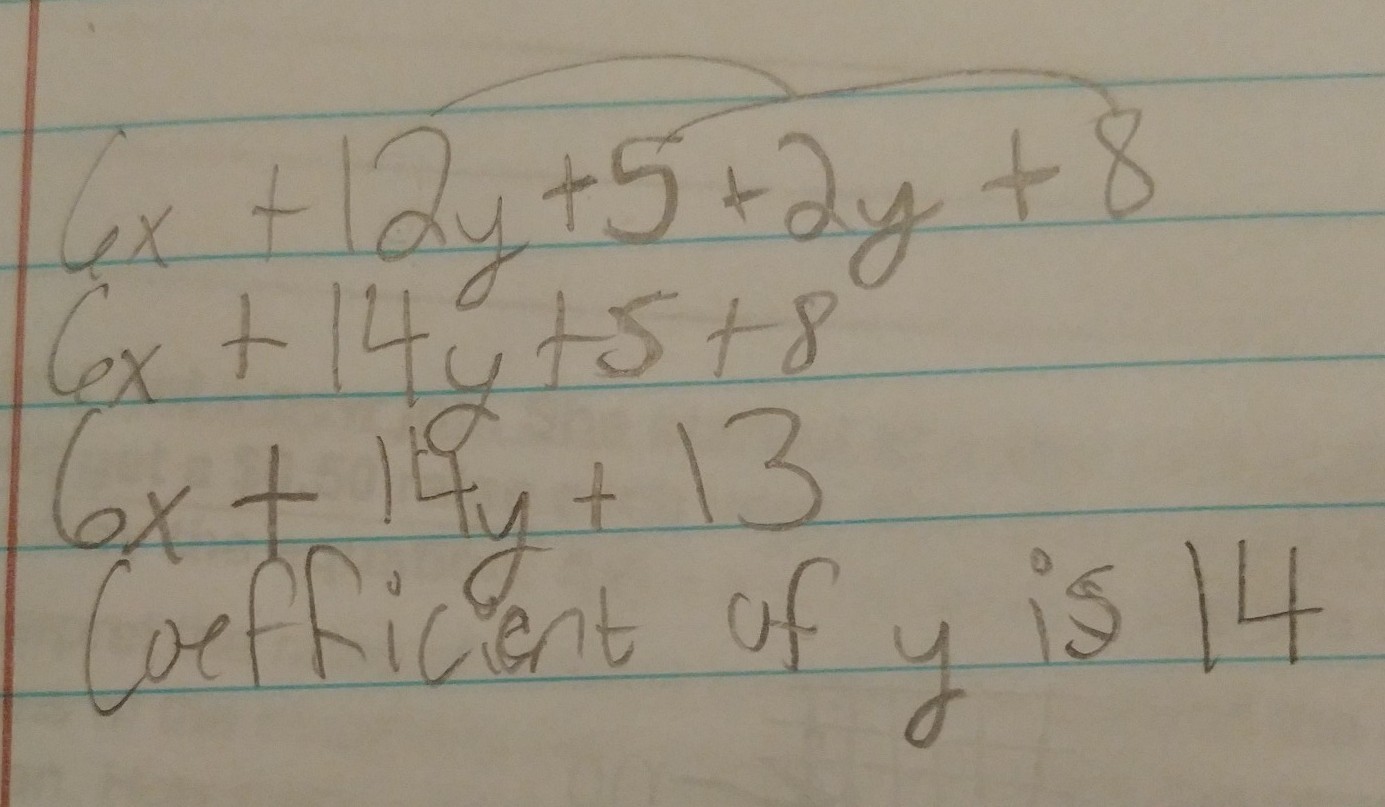 6x + 12y + 5 + 2y + 8
6x + 14y + 5 + 8
6x + 14y + 13
Coefficient of y is 14